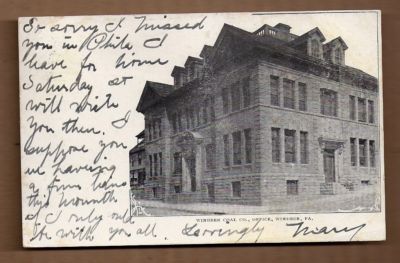 So sorry I missed
you in Phila I
leave for home
Saturday at
will write
you then. I
suppose you
are having
a fine time
this month
if I only could
be with you all. Lovingly Mary
WINDBER COAL CO., OFFICE, WINDBER, PA.